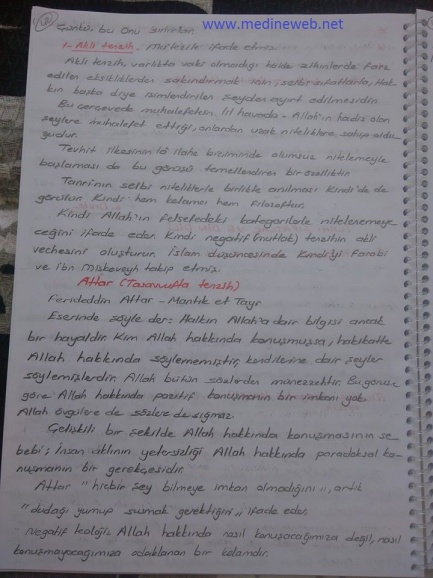 www.medineweb.net
Çünkü; bu onu sınırlar.
1- Akli tenzih: Mutezile ifade etmiş.
Akli tenzih, varlıkta vaki olmadığı halde zihinlerde farz
edilen eksikliklerden sakındırmak için, selbi sıfatlarla, Hak-
kın başka diye isimlendirilen şeyden ayırt edilmesidir.
Bu çerçevede muhalefetün lil havadis - Allah'ın hadis olan
şeylere muhalefet ettiği, onlardan uzak niteliklere sahip oldu-
ğudur.
Tevhit ilkesinin lâ ilahe biçiminde olumsuz nitelemeyle
başlaması da bu görüşü temellendiren bir özelliktir.
Tanrı'nın selbi niteliklerle birlikte anılması Kindi'de de
görülür. Kindi hem kelamcı hem filozoftur.
Kindi Allah'ın felsefedeki kategorilerle nitelenemeye-
ceğini ifade eder. Kindi negatif (mutlak) tenzihin akli
vechesini oluşturur. İslam düşüncesinde Kindi'yi Farabi
ve İbn Miskeveyh takip etmiş.
Attar (Tasavvufta tenzih)
Ferideddin Attar - Mantık et Tayr
Eserinde şöyle der: Halkın Allah'a dair bilgisi ancak
bir hayaldir. Kim Allah hakkında konuşmuşsa, hakikatte
Allah hakkında söylememiştir, kendilerine dair şeyler
söylemişlerdir. Allah bütün sözlerden münezzehtir. Bu görüşe
göre Allah hakkında pozitif konuşmanın bir imkanı yok
Allah övgülere de sözlere de sığmaz.
Çelişkili bir şekilde Allah hakkında konuşmasının se-
bebi; insan aklının yetersizliği Allah hakkında paradoksal ko-
nuşmanın bir gerekçesidir.
Attar "hiçbir şey bilmeye imkan olmadığını", artık
"dudağı yumup susmak gerektiğini" ifade eder.
- Negatif teoloji; Allah hakkında nasıl konuşacağımıza değil, nasıl
konuşmayacağımıza odaklanan bir kelamdır.